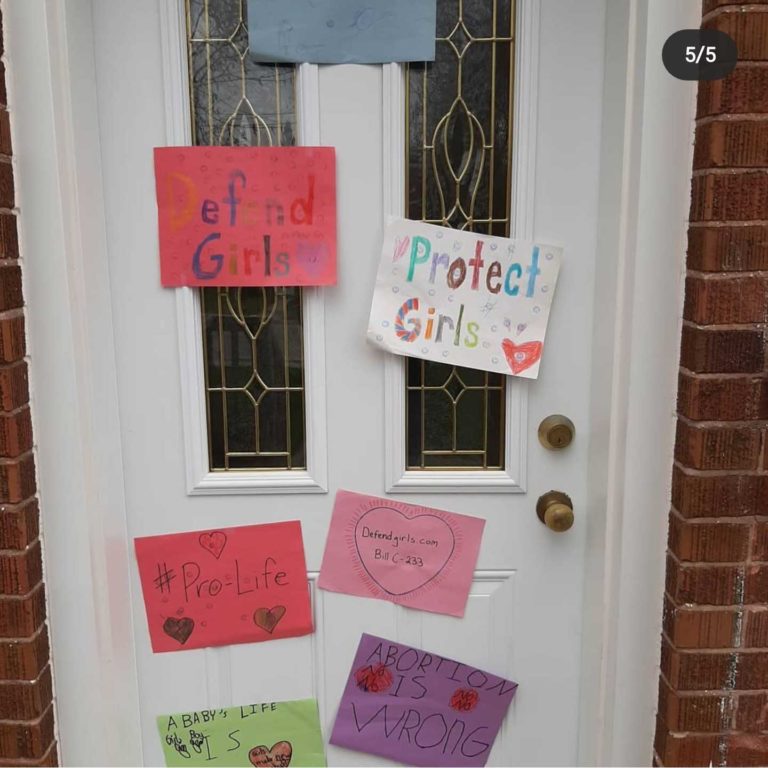 5/5
Defend
Girls
Protect
Girls
Defendgirls.com
Bill C-233
#Pro-Life
ABORTION
IS
NO
NO
WRONG
A BABY'S LIFE
Girl Boy
IS